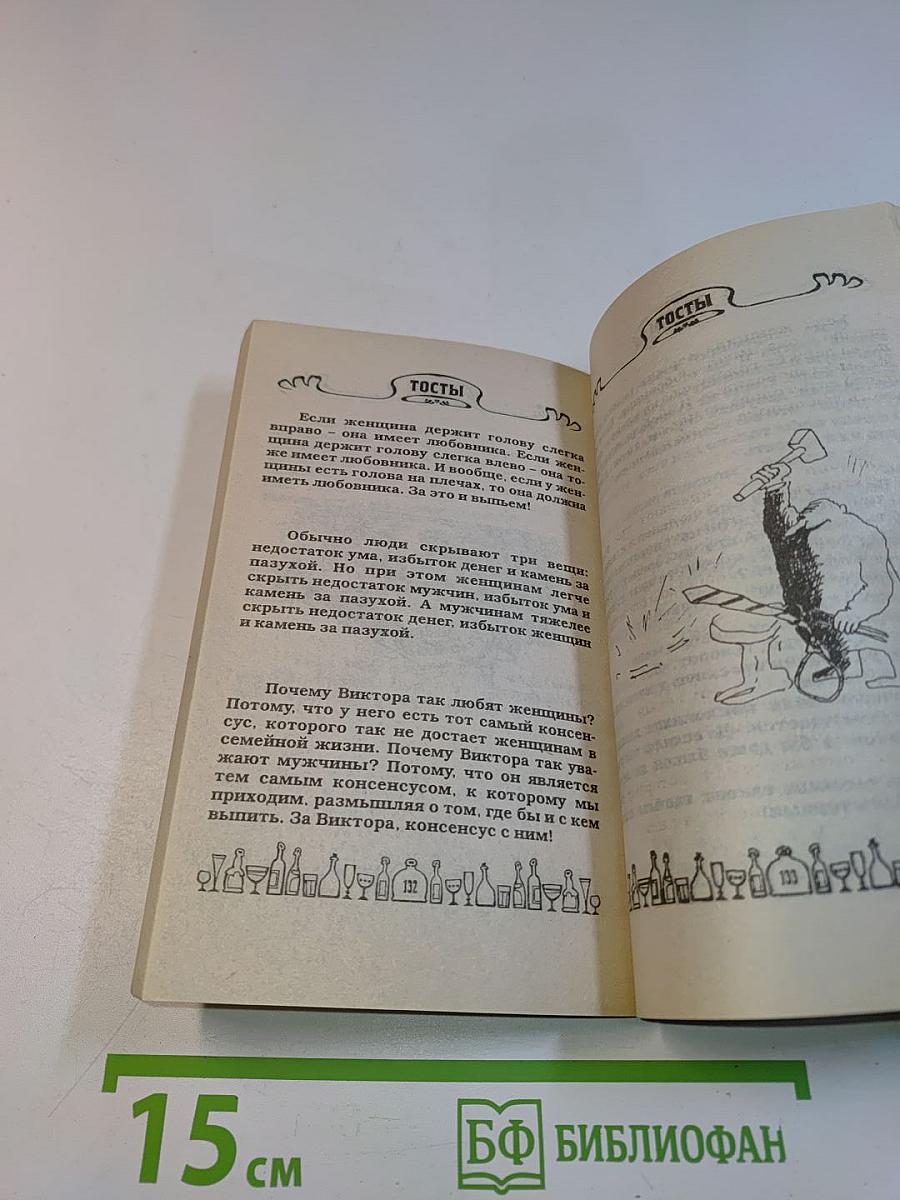 ТОСТЫ
Если женщина держит голову слегка
вправо – она имеет любовника. Если жен-
щина держит голову слегка влево – она то-
же имеет любовника. И вообще, если у жен-
щины есть голова на плечах, то она должна
иметь любовника. За это и выпьем!
Обычно люди скрывают три вещи:
недостаток ума, избыток денег и камень за
пазухой. Но при этом женщинам легче
скрыть недостаток мужчин, избыток ума и
камень за пазухой. А мужчинам тяжелее
скрыть недостаток денег, избыток женщин
и камень за пазухой.
Почему Виктора так любят женщины?
Потому, что у него есть тот самый консен-
сус, которого так не достает женщинам в
семейной жизни. Почему Виктора так ува-
жают мужчины? Потому, что он является
тем самым консенсусом, к которому мы
приходим, размышляя о том, где бы и с кем
выпить. За Виктора, консенсус с ним!
132
ТОСТЫ
133
15 см
БФ БИБЛИОФАН